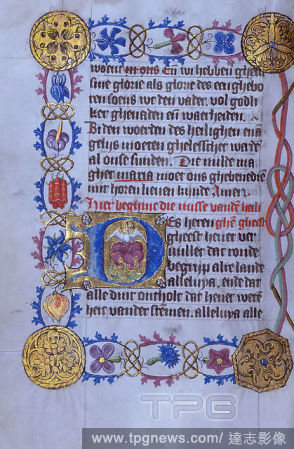 woent in ons Eñ wi hebben ghesi
sine glorie als glorie des eenghebo
ren soens van den vader. vol godli
ker ghenaden en waerheiden.
Bi den woerden des heilighen eua
gelijs moeten ghelesschet waerden
al onse sunden. Die milde ma
gher maria moet ons ghebenediē
mit horen lieuen kijnde Amen
Hier beghint die misse vandē heili
Des heren ghē gheest
gheest heuet ver
uullet dat ronde
begrijp alre lande
alleluya. ende dat
alle dinc ontholt dat heuet wetē
heit vander stemen. alleluya alle
TPG
www.tpgnews.com / 達志影像